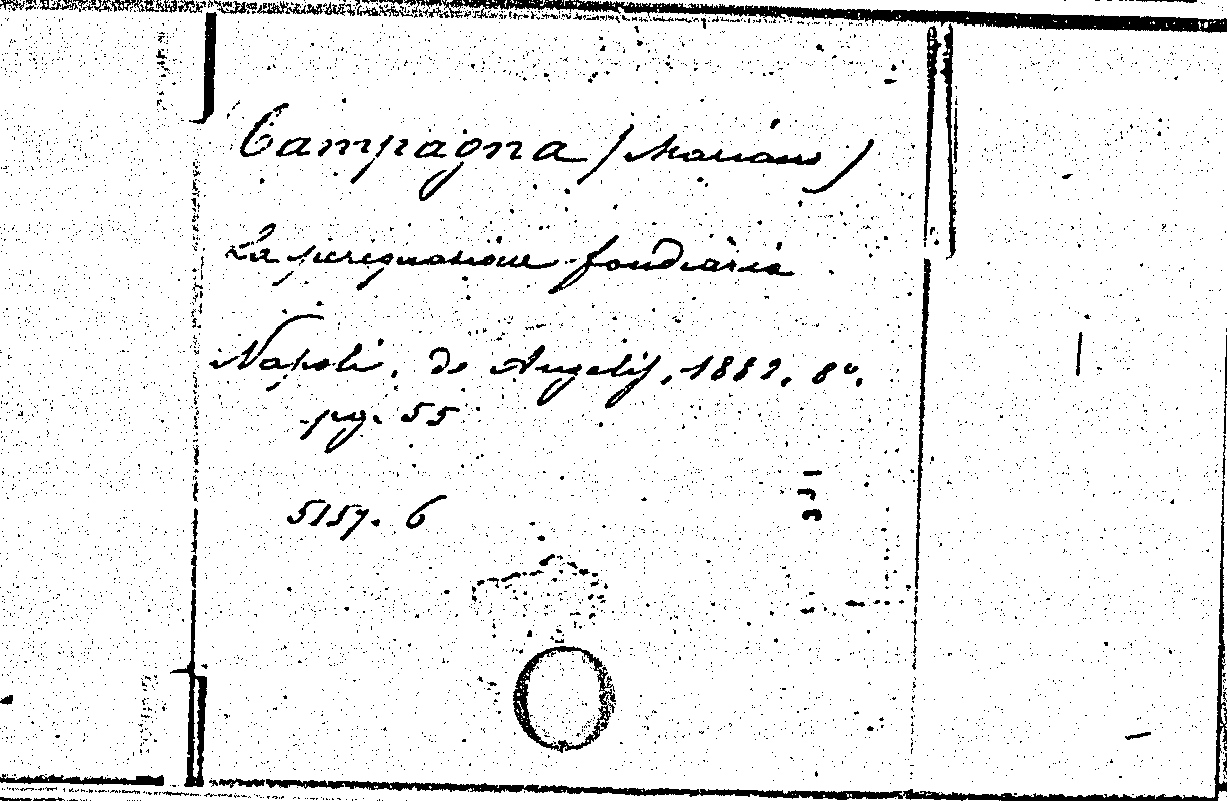 Campagna (Mariano)
La perequazione fondiaria
Napoli, de Angelis, 1882, 8º,
pg. 55
5157. 6